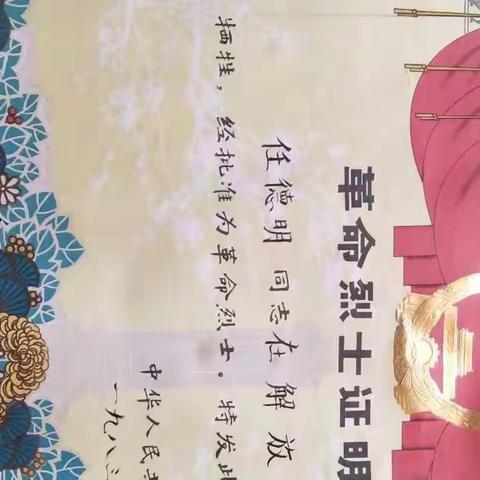 革命烈士证明
任德明同志在解放
牺牲，经批准为革命烈士。特发此
中华人民共
一九八三